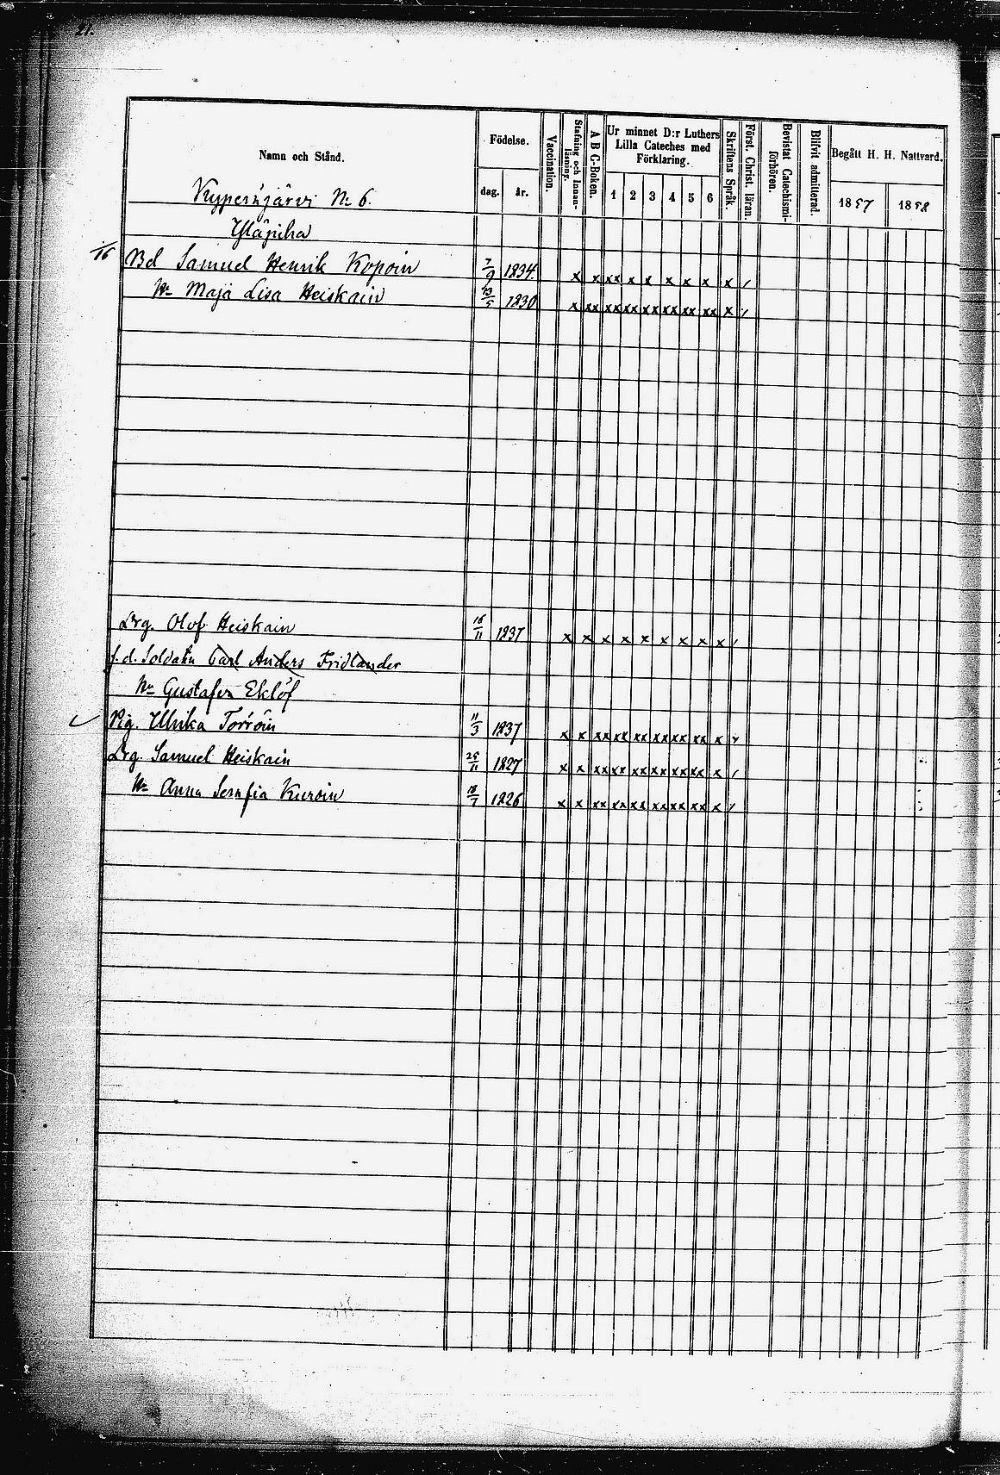 21.
Namn och Stånd.
Födelse.
dag.
år.
Vaccination.
Stafning och Innan-
läsning.
A B C-Boken.
Ur minnet D:r Luthers
Lilla Cateches med
Förklaring.
1 2 3 4 5 6
Skriftens Språk.
Först. Christ. läran.
Bevistat Catechismi-
förhören.
Blifvit admitterad.
Begått H. H. Nattvard.
1857
1858
N: 6.
Bd Samuel Henrik Kopoin 7/9 1834 x x xx x x x x x x /
Maja Lisa Heiskain 1830 x xx xx xx xx xx xx xx x /
Drg. Olof Heiskain 16/11 1837 x x x x x x x x x /
f.d. Soldatn Carl Anders Fridlander
Gustafva Eklöf
Pig. Ulrika Torvoin 11/3 1837 x x xx xx xx xx xx xx x
Drg. Samuel Heiskain 1827 x x xx xx xx xx xx xx x /
Anna Serafia Kuroin 18/7 1826 x x xx xx xx xx xx xx x /